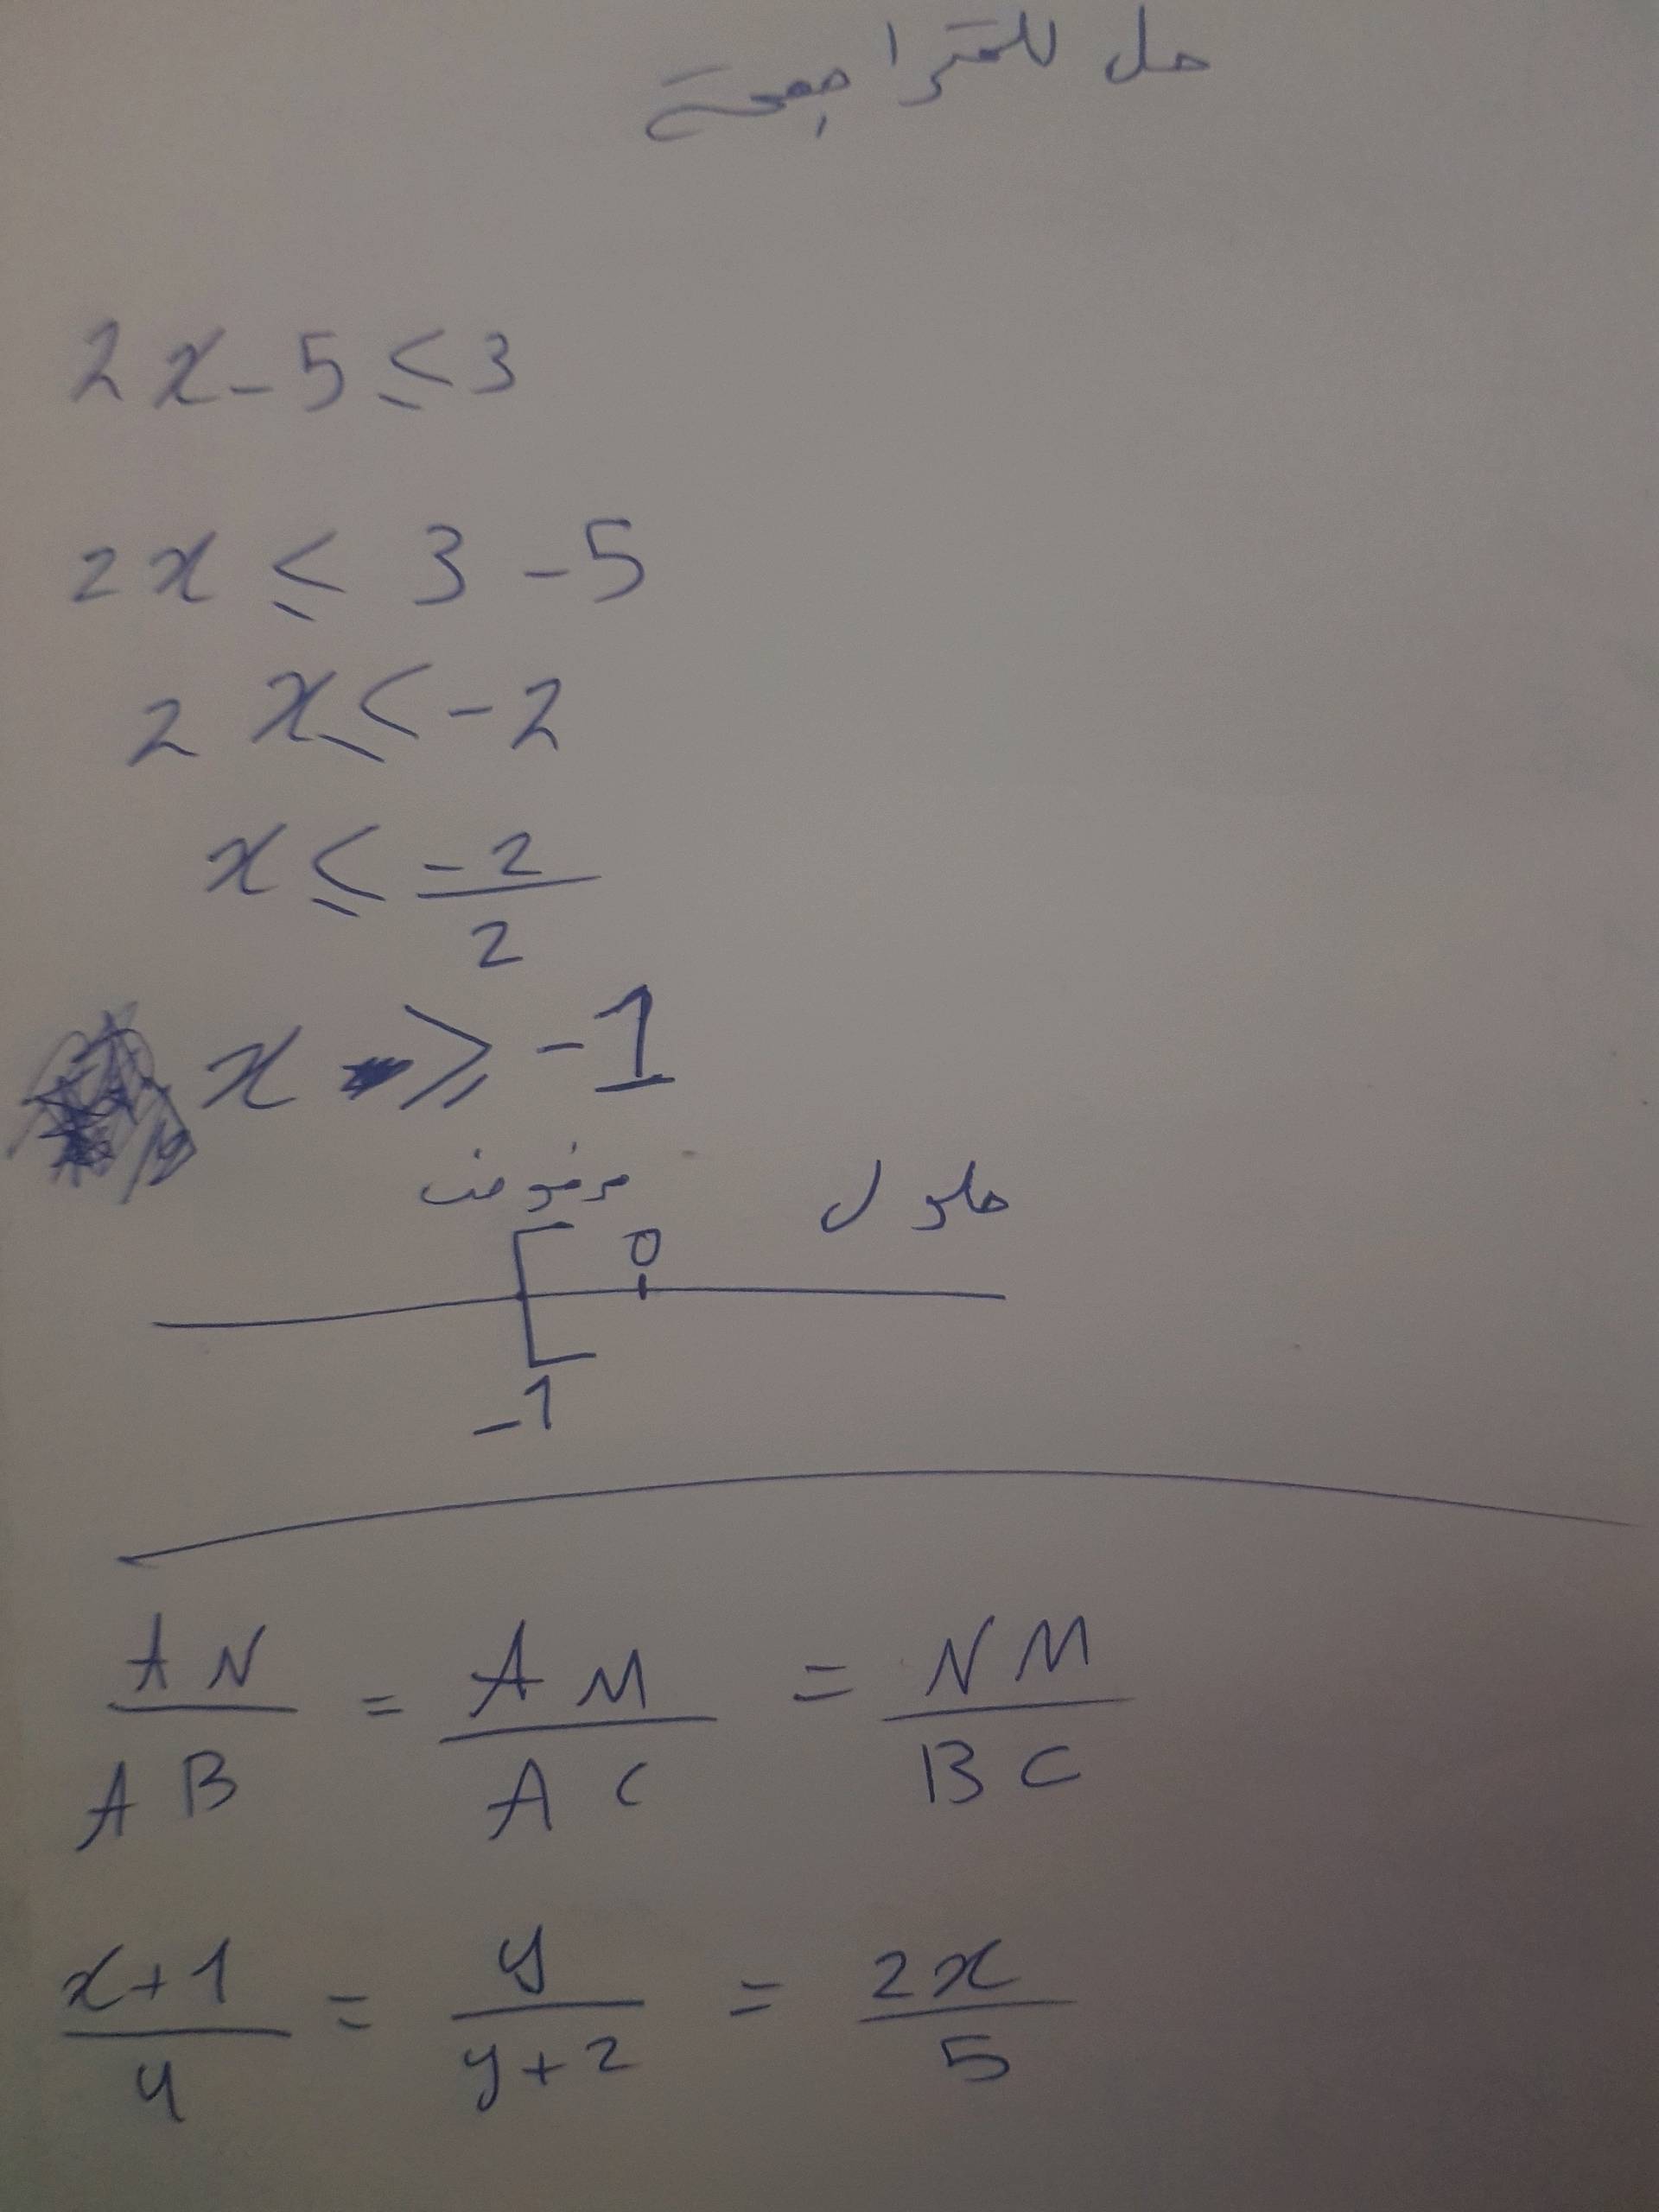 حل للمتراجحة
2x - 5 ≤ 3
2x ≤ 3 - 5
2x ≤ -2
x ≤ -2/2
x ≥ -1
حلول
0
-1
AN/AB = AM/AC = NM/BC
x+1/4 = y/y+2 = 2x/5